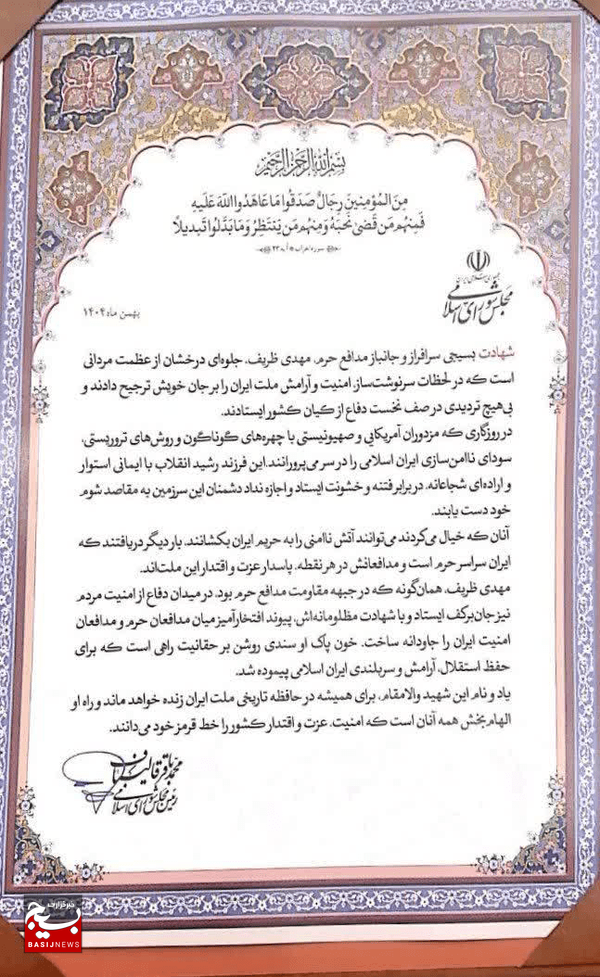 بسم الله الرحمن الرحیم
مِنَ المُؤمِنینَ رِجالٌ صَدَقُوا ما عاهَدُوا اللّهَ عَلَیهِ
فَمِنهُم مَن قَضىٰ نَحبَهُ وَمِنهُم مَن یَنتَظِرُ وَما بَدَّلُوا تَبدیلًا
سوره احزاب آیه ۲۳
جمهوری اسلامی ایران
مجلس شورای اسلامی
بهمن ماه ۱۴۰۴
شهادت بسیجی سرافراز و جانباز مدافع حرم، مهدی ظریف، جلوه‌ای درخشان از عظمت مردانی
است که در لحظات سرنوشت‌ساز، امنیت و آرامش ملت ایران را بر جان خویش ترجیح دادند و
بی‌هیچ تردیدی در صف نخست دفاع از کیان کشور ایستادند.
در روزگاری که مزدوران آمریکایی و صهیونیستی با چهره‌های گوناگون و روش‌های تروریستی،
سودای ناامن‌سازی ایران اسلامی را در سر می‌پرورانند، این فرزند رشید انقلاب با ایمانی استوار
و اراده‌ای شجاعانه، در برابر فتنه و خشونت ایستاد و اجازه نداد دشمنان این سرزمین به مقاصد شوم
خود دست یابند.
آنان که خیال می‌کردند می‌توانند آتش ناامنی را به حریم ایران بکشانند، بار دیگر دریافتند که
ایران سراسر حرم است و مدافعانش در هر نقطه، پاسدار عزت و اقتدار این ملت‌اند.
مهدی ظریف، همان‌گونه که در جبهه مقاومت مدافع حرم بود، در میدان دفاع از امنیت مردم
نیز جان‌برکف ایستاد و با شهادت مظلومانه‌اش، پیوند افتخارآمیز میان مدافعان حرم و مدافعان
امنیت ایران را جاودانه ساخت. خون پاک او سندی روشن بر حقانیت راهی است که برای
حفظ استقلال، آرامش و سربلندی ایران اسلامی پیموده شد.
یاد و نام این شهید والامقام، برای همیشه در حافظه تاریخی ملت ایران زنده خواهد ماند و راه او
الهام‌بخش همه آنان است که امنیت، عزت و اقتدار کشور را خط قرمز خود می‌دانند.
محمدباقر قالیباف
رئیس مجلس شورای اسلامی
خبرگزاری
بسیج
BASIJNEWS